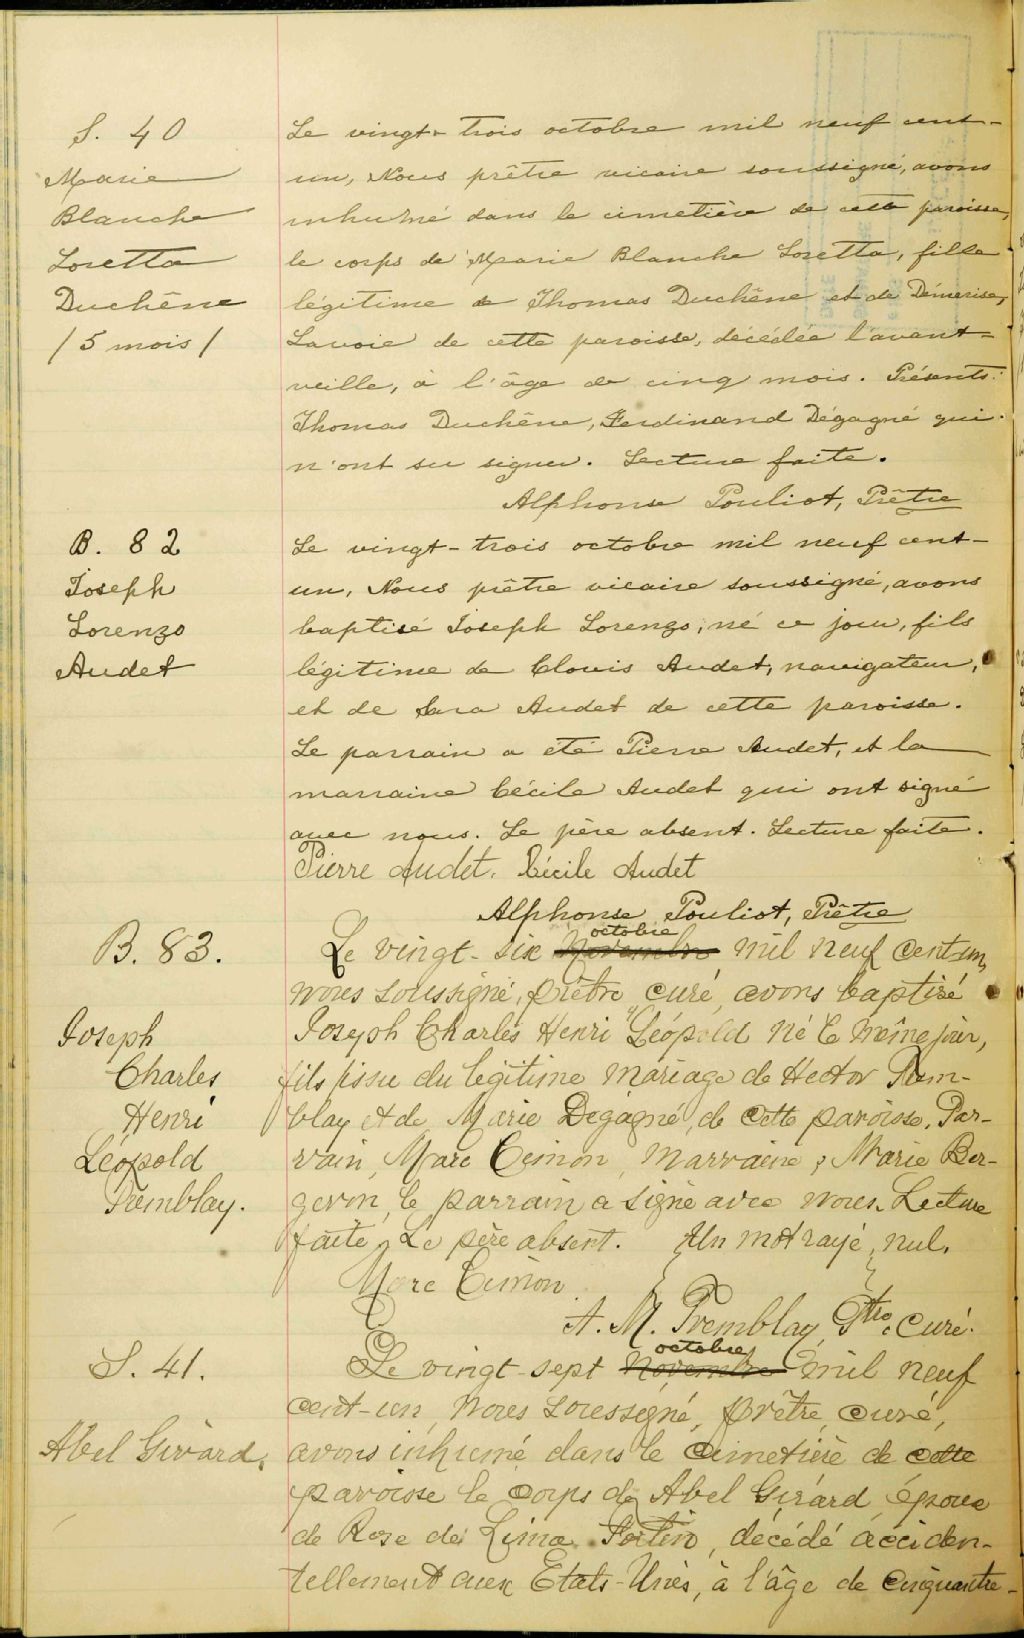 S. 40
Marie
Blanche
Loretta
Duchêne
/ 5 mois /
Le vingt-trois octobre mil neuf cent-
un, Nous prêtre vicaire soussigné, avons
inhumé dans le cimetière de cette paroisse,
le corps de Marie Blanche Loretta, fille
légitime de Thomas Duchêne et de Démerise,
Lavoie de cette paroisse, décédée l'avant-
veille, à l'âge de cinq mois. Présents:
Thomas Duchêne, Ferdinand Dégagné qui
n'ont su signer. Lecture faite.
Alphonse Pouliot, Prêtre
B. 82
Joseph
Lorenzo
Audet
Le vingt-trois octobre mil neuf cent-
un, Nous prêtre vicaire soussigné, avons
baptisé Joseph Lorenzo, né ce jour, fils
légitime de Clovis Audet, navigateur,
et de Sara Audet de cette paroisse.
Le parrain a été Pierre Audet, et la
marraine Cécile Audet qui ont signé
avec nous. Le père absent. Lecture faite.
Pierre Audet. Cécile Audet
Alphonse Pouliot, Prêtre
B. 83.
Joseph
Charles
Henri
Léopold
Tremblay.
octobre
Le vingt-six Novembre mil neuf cent-un,
nous soussigné, prêtre curé, avons baptisé
Joseph Charles Henri Léopold né le même jour,
fils issu du légitime mariage de Hector Trem-
blay et de Marie Dégagné, de cette paroisse. Par-
rain, Marc Cimon, Marraine, Marie Ber-
geron, le parrain a signé avec nous. Lecture
faite. Le père absent. Un mot rayé, nul.
Marc Cimon
A. M. Tremblay Ptre. Curé.
S. 41.
Abel Girard.
octobre
Le vingt-sept Novembre mil neuf
cent-un, nous soussigné, prêtre, curé,
avons inhumé dans le cimetière de cette
paroisse le corps de Abel Girard époux
de Rose de Lima Fortin, décédé acciden-
tellement aux Etats-Unis, à l'âge de cinquante-